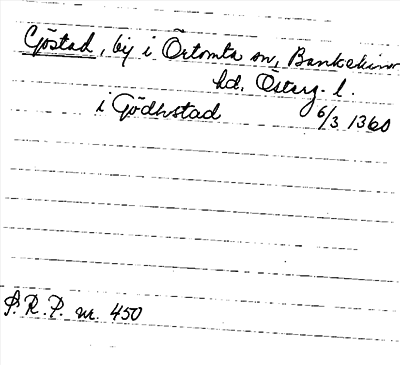 Gjöstad, by i Örtomta sn, Bankekinds
hd, Österg. l.
i Gödhstad 6/3 1360
S.R.P. nr. 450